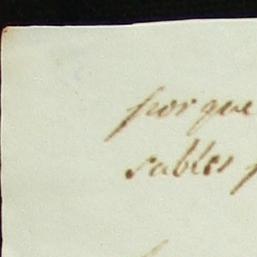 porque
sables